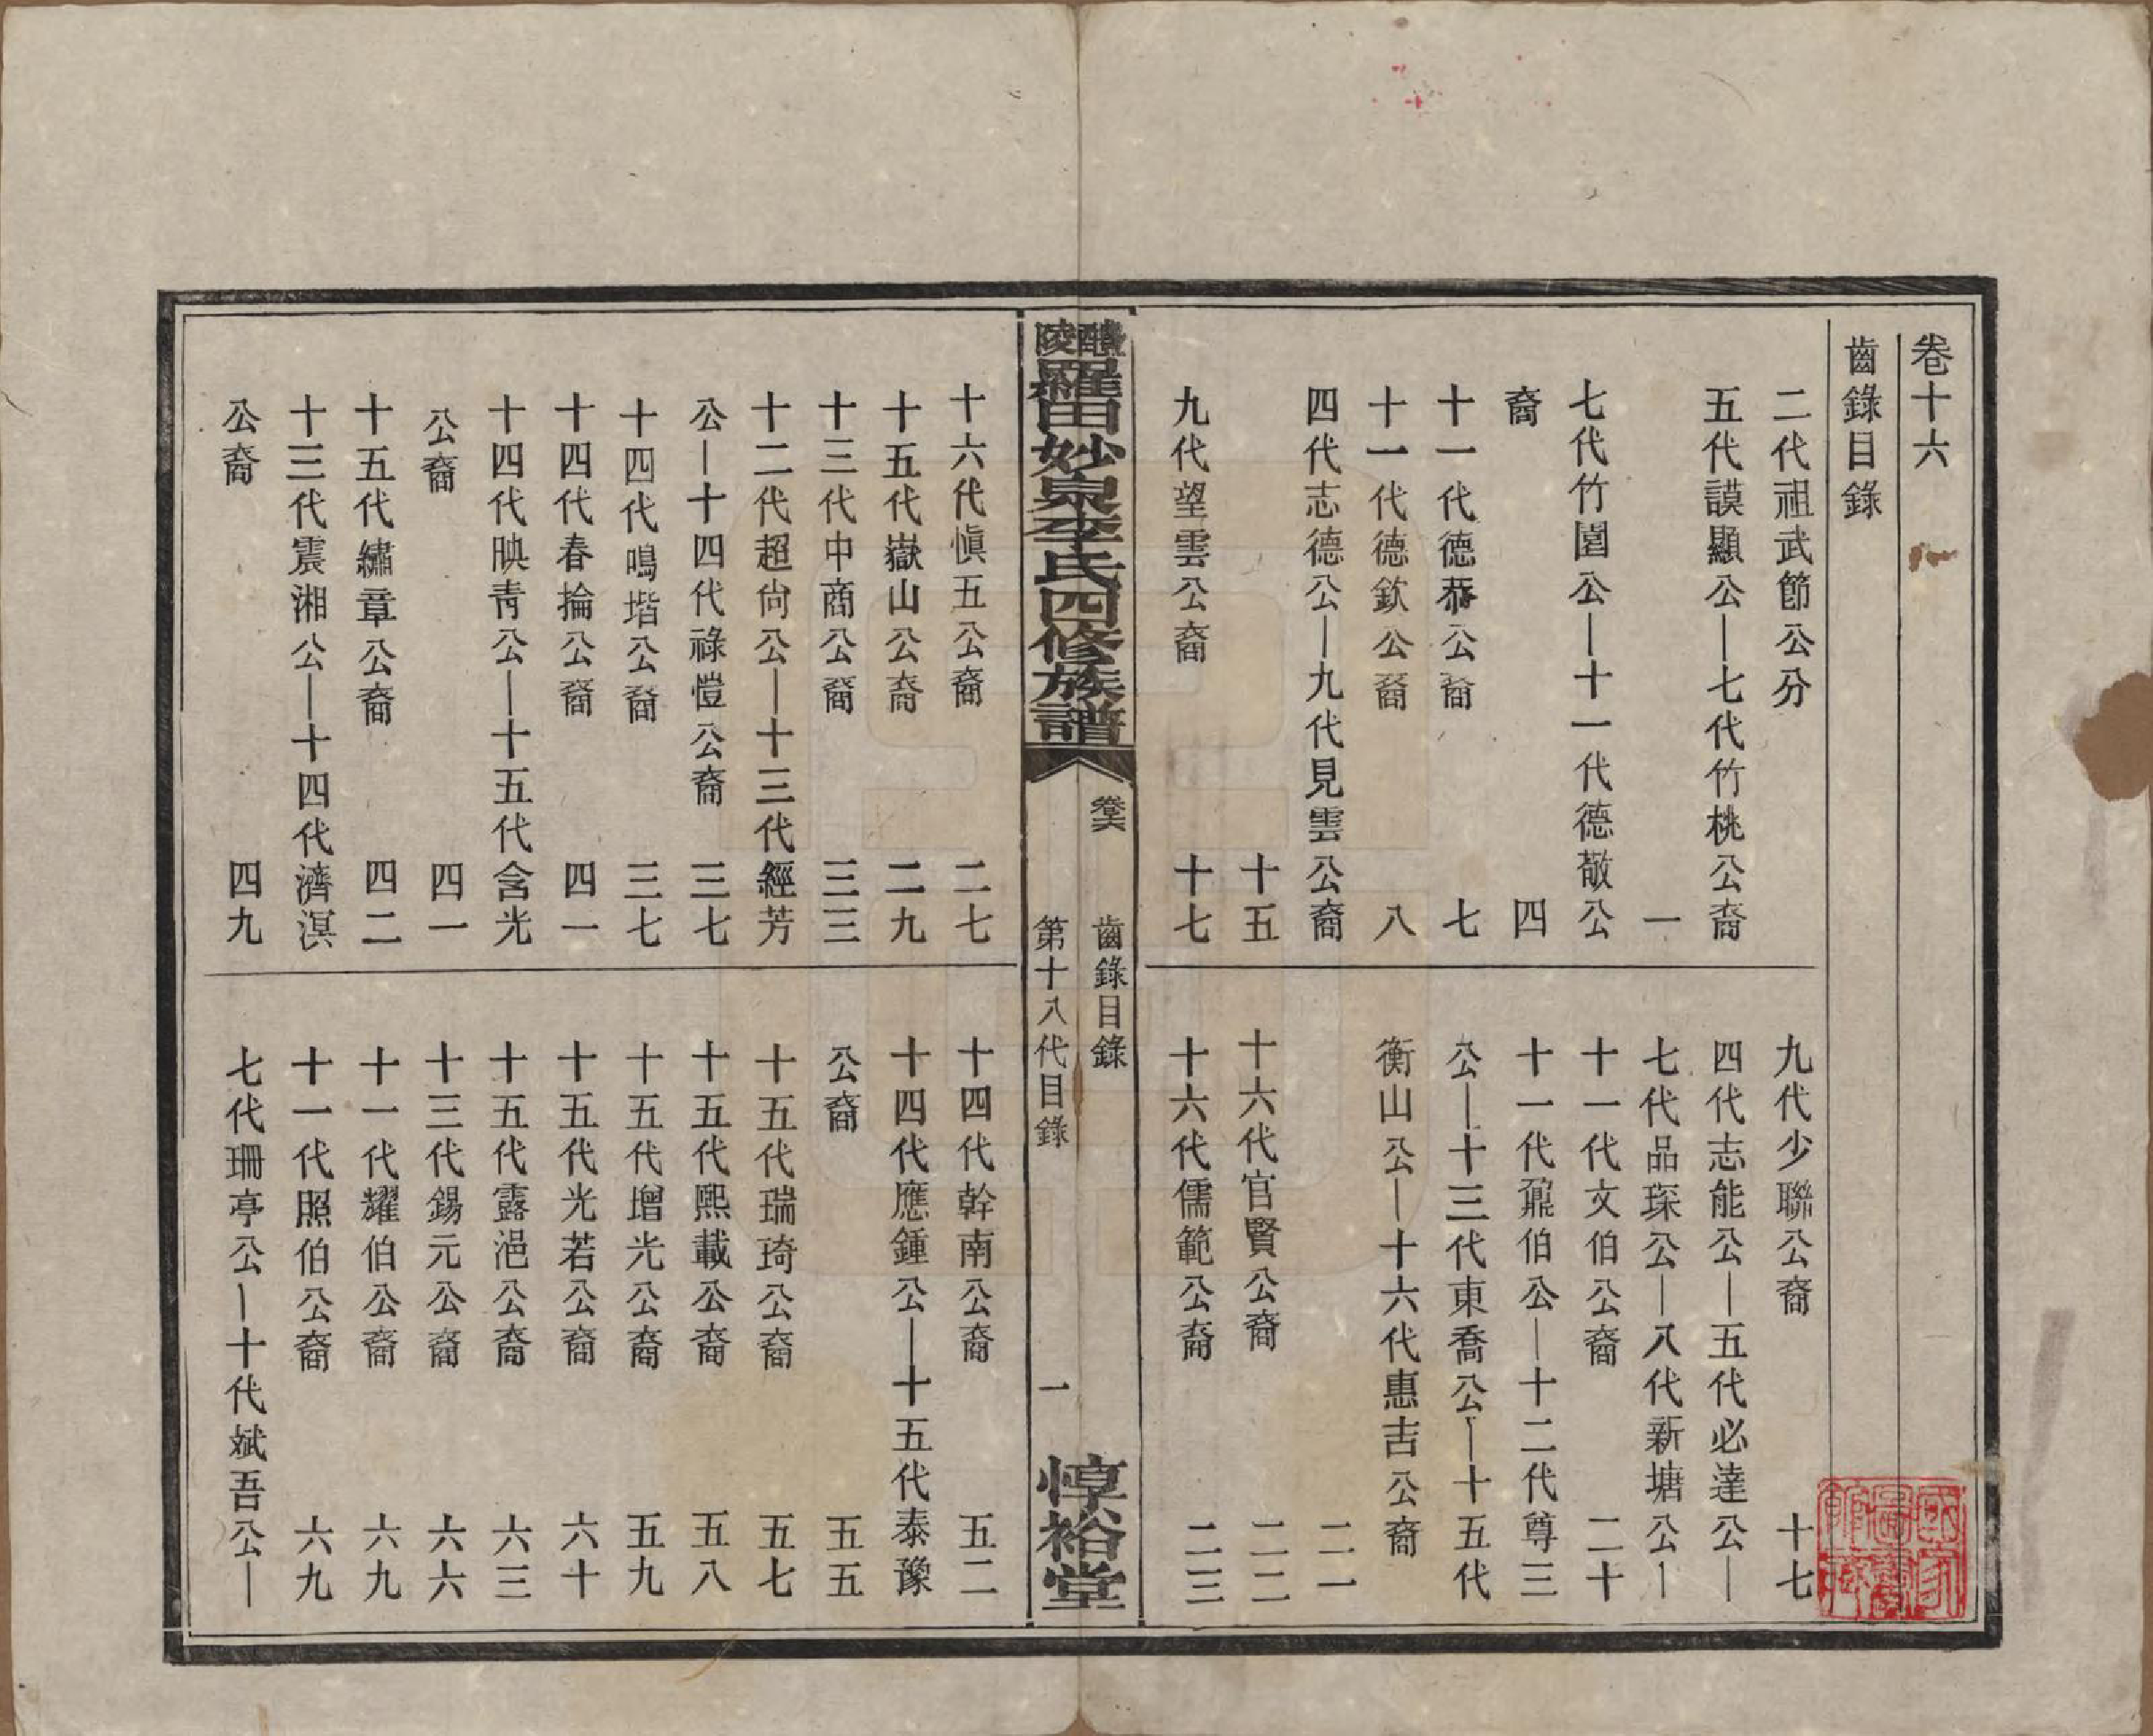 卷十六
齒錄目錄
二代祖武節公分
五代謨顯公—七代竹桃公裔
一
七代竹園公—十一代德敬公
裔 四
十一代德恭公裔 七
十一代德欽公裔 八
四代志德公—九代見雲公裔
十五
九代望雲公裔 十七
九代少聯公裔 十七
四代志能公—五代必達公—
七代品琛公—八代新塘公—
十一代文伯公裔 二十
十一代鼐伯公—十二代尊三
公—十三代東喬公—十五代
衡山公—十六代惠吉公裔
二一
十六代官賢公裔 二二
十六代儒範公裔 二三
醴陵羅田妙泉李氏四修族譜
卷十六
齒錄目錄
第十八代目錄
一
惇裕堂
十六代慎五公裔 二七
十五代嶽山公裔 二九
十三代中商公裔 三三
十二代超尙公—十三代經芳
公—十四代祿愷公裔 三七
十四代鳴堦公裔 三七
十四代春掄公裔 四一
十四代映青公—十五代含光
公裔 四一
十五代繡章公裔 四二
十三代震湘公—十四代濟溟
公裔 四九
十四代幹南公裔 五二
十四代應鍾公—十五代泰豫
公裔 五五
十五代瑞琦公裔 五七
十五代熙載公裔 五八
十五代增光公裔 五九
十五代光若公裔 六十
十五代露浥公裔 六三
十三代錫元公裔 六六
十一代耀伯公裔 六九
十一代照伯公裔 六九
七代珊亭公—十代斌吾公—